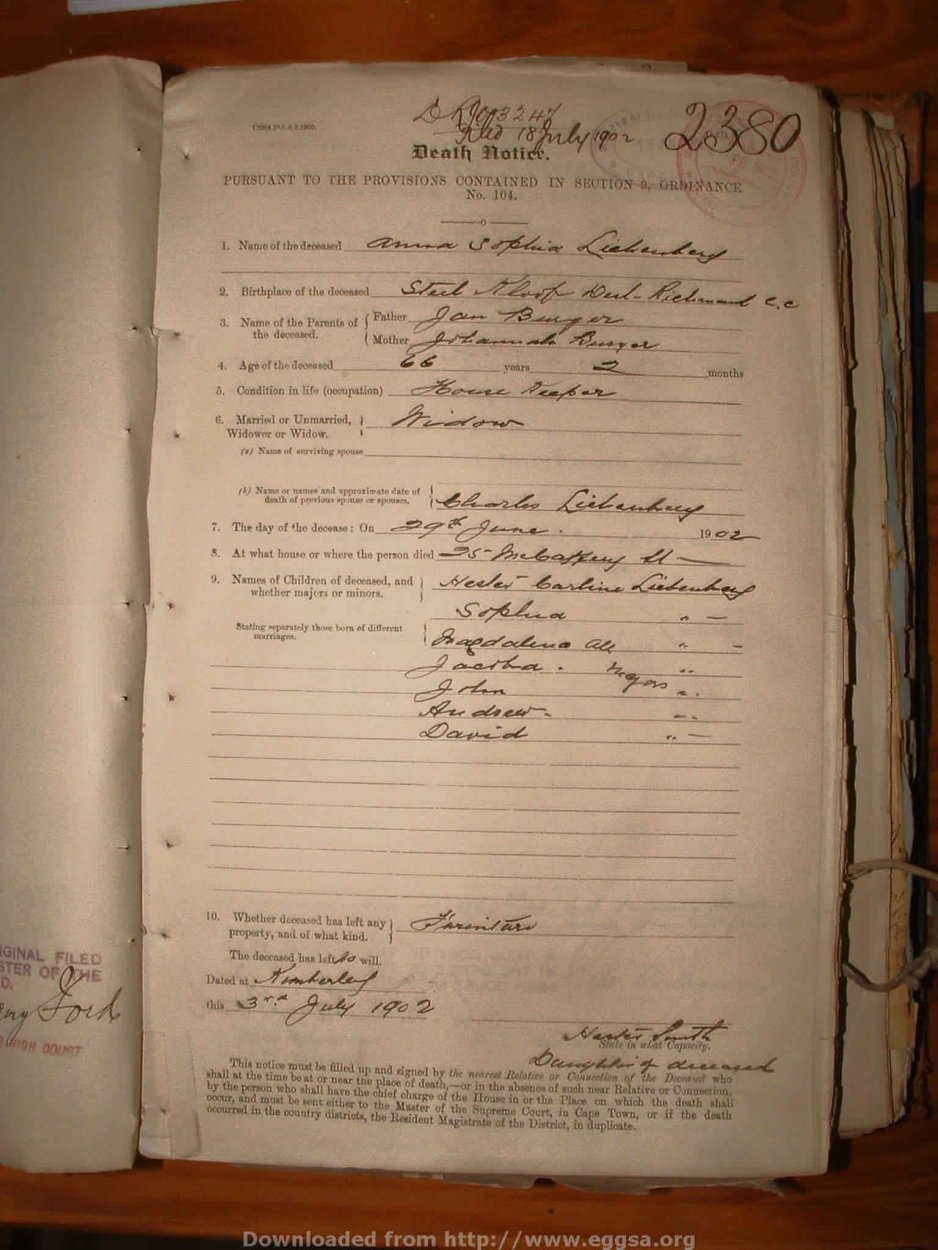 2380
Red 18 July 1902
Death Notice.
PURSUANT TO THE PROVISIONS CONTAINED IN SECTION 9, ORDINANCE
No. 104.
1. Name of the deceased Anna Sophia Liebenberg
2. Birthplace of the deceased Steel Kloof Dist. Richmond C.C
3. Name of the Parents of the deceased. Father Jan Burger
Mother Johannah Burger
4. Age of the deceased 66 years 2 months
5. Condition in life (occupation) House Keeper
6. Married or Unmarried, Widower or Widow. Widow
(a) Name of surviving spouse
(b) Name or names and approximate date of death of previous spouse or spouses. Charles Liebenberg
7. The day of the decease: On 29th June. 1902
8. At what house or where the person died 25 McCaffery St
9. Names of Children of deceased, and whether majors or minors. Hester Carline Liebenberg
Sophia " -
Stating separately those born of different marriages. Magdalena All " -
Jacoba. Majors "
John "
Andrew "
David " -
10. Whether deceased has left any property, and of what kind. Furniture
The deceased has left no will.
Dated at Kimberley
this 3rd July 1902
Hester Smith
State in what Capacity.
Daughter of deceased
This notice must be filled up and signed by the nearest Relative or Connection of the Deceased who
shall at the time be at or near the place of death,—or in the absence of such near Relative or Connection,
by the person who shall have the chief charge of the House in or the Place on which the death shall
occur, and must be sent either to the Master of the Supreme Court, in Cape Town, or if the death
occurred in the country districts, the Resident Magistrate of the District, in duplicate.
IGINAL FILED
STER OF THE
D.
HIGH COURT
Downloaded from http://www.eggsa.org